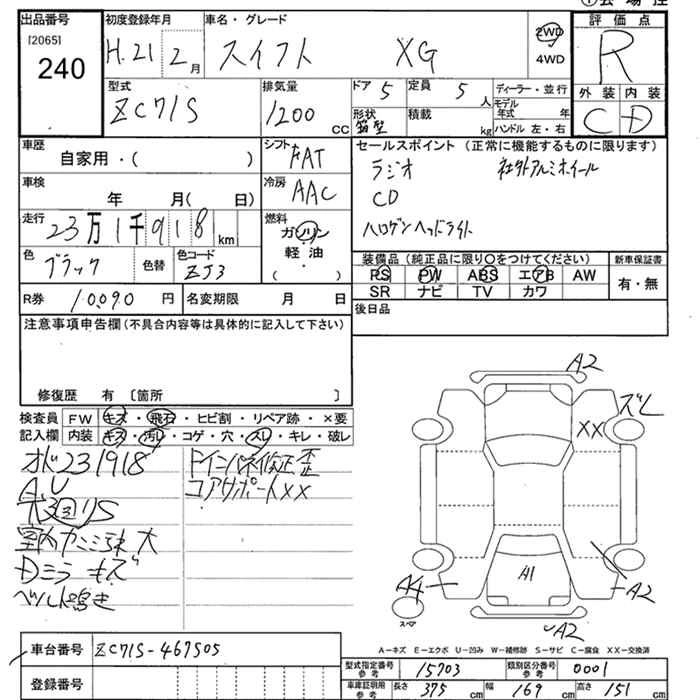 ①会場控
出品番号 初度登録年月 車名・グレード 評価点
[2065]
240 H.21 2月 スイフト XG 2WD 4WD R
型式 排気量 ドア 5 定員 5人 ディーラー・並行 外装 内装
ZC71S 1200cc 形状 箱型 積載 kg モデル年式 年 ハンドル 左・右 C D
車歴 自家用・( ) シフト FAT セールスポイント (正常に機能するものに限ります)
ラジオ 社外アルミホイール
車検 年 月( 日) 冷房 AAC CD
走行 23万1千918km 燃料 ガソリン 軽油 ( ) ハロゲンヘッドライト
色 ブラック 色替 色コード ZJ3
装備品(純正品に限り○をつけてください) 新車保証書
PS PW ABS エアB AW 有・無
SR ナビ TV カワ
R券 10,090円 名変期限 月 日 後日品
注意事項申告欄(不具合内容等は具体的に記入して下さい)
修復歴 有 〔箇所 〕
検査員 FW キズ・飛石・ヒビ割・リペア跡・×要
記入欄 内装 キズ・汚レ・コゲ・穴・スレ・キレ・破レ
オド231918
A,U
室内カミミ
Dミラーキズ
ベルト鳴き
コアサポートXX
A2
ズレ
XX
A1
A4
A2
スペア
A2
A−キズ E−エクボ U−凹み W−補修跡 S−サビ C−腐食 XX−交換済
車台番号 ZC71S-467505
型式指定番号 参考 15703 類別区分番号 参考 0001
登録番号
車庫証明用 参考 長さ 375cm 幅 169cm 高さ 151cm